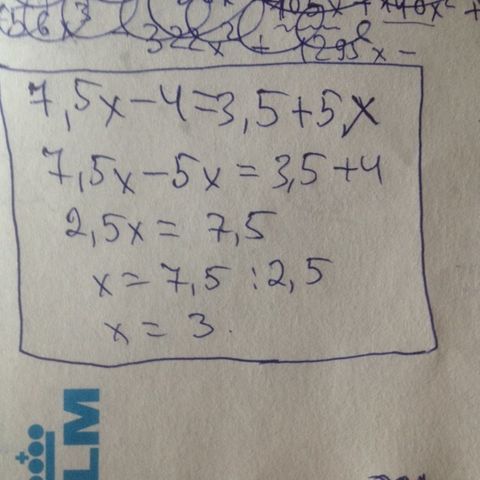 7,5x-4=3,5+5x
7,5x-5x=3,5+4
2,5x=7,5
x=7,5:2,5
x=3.
LM